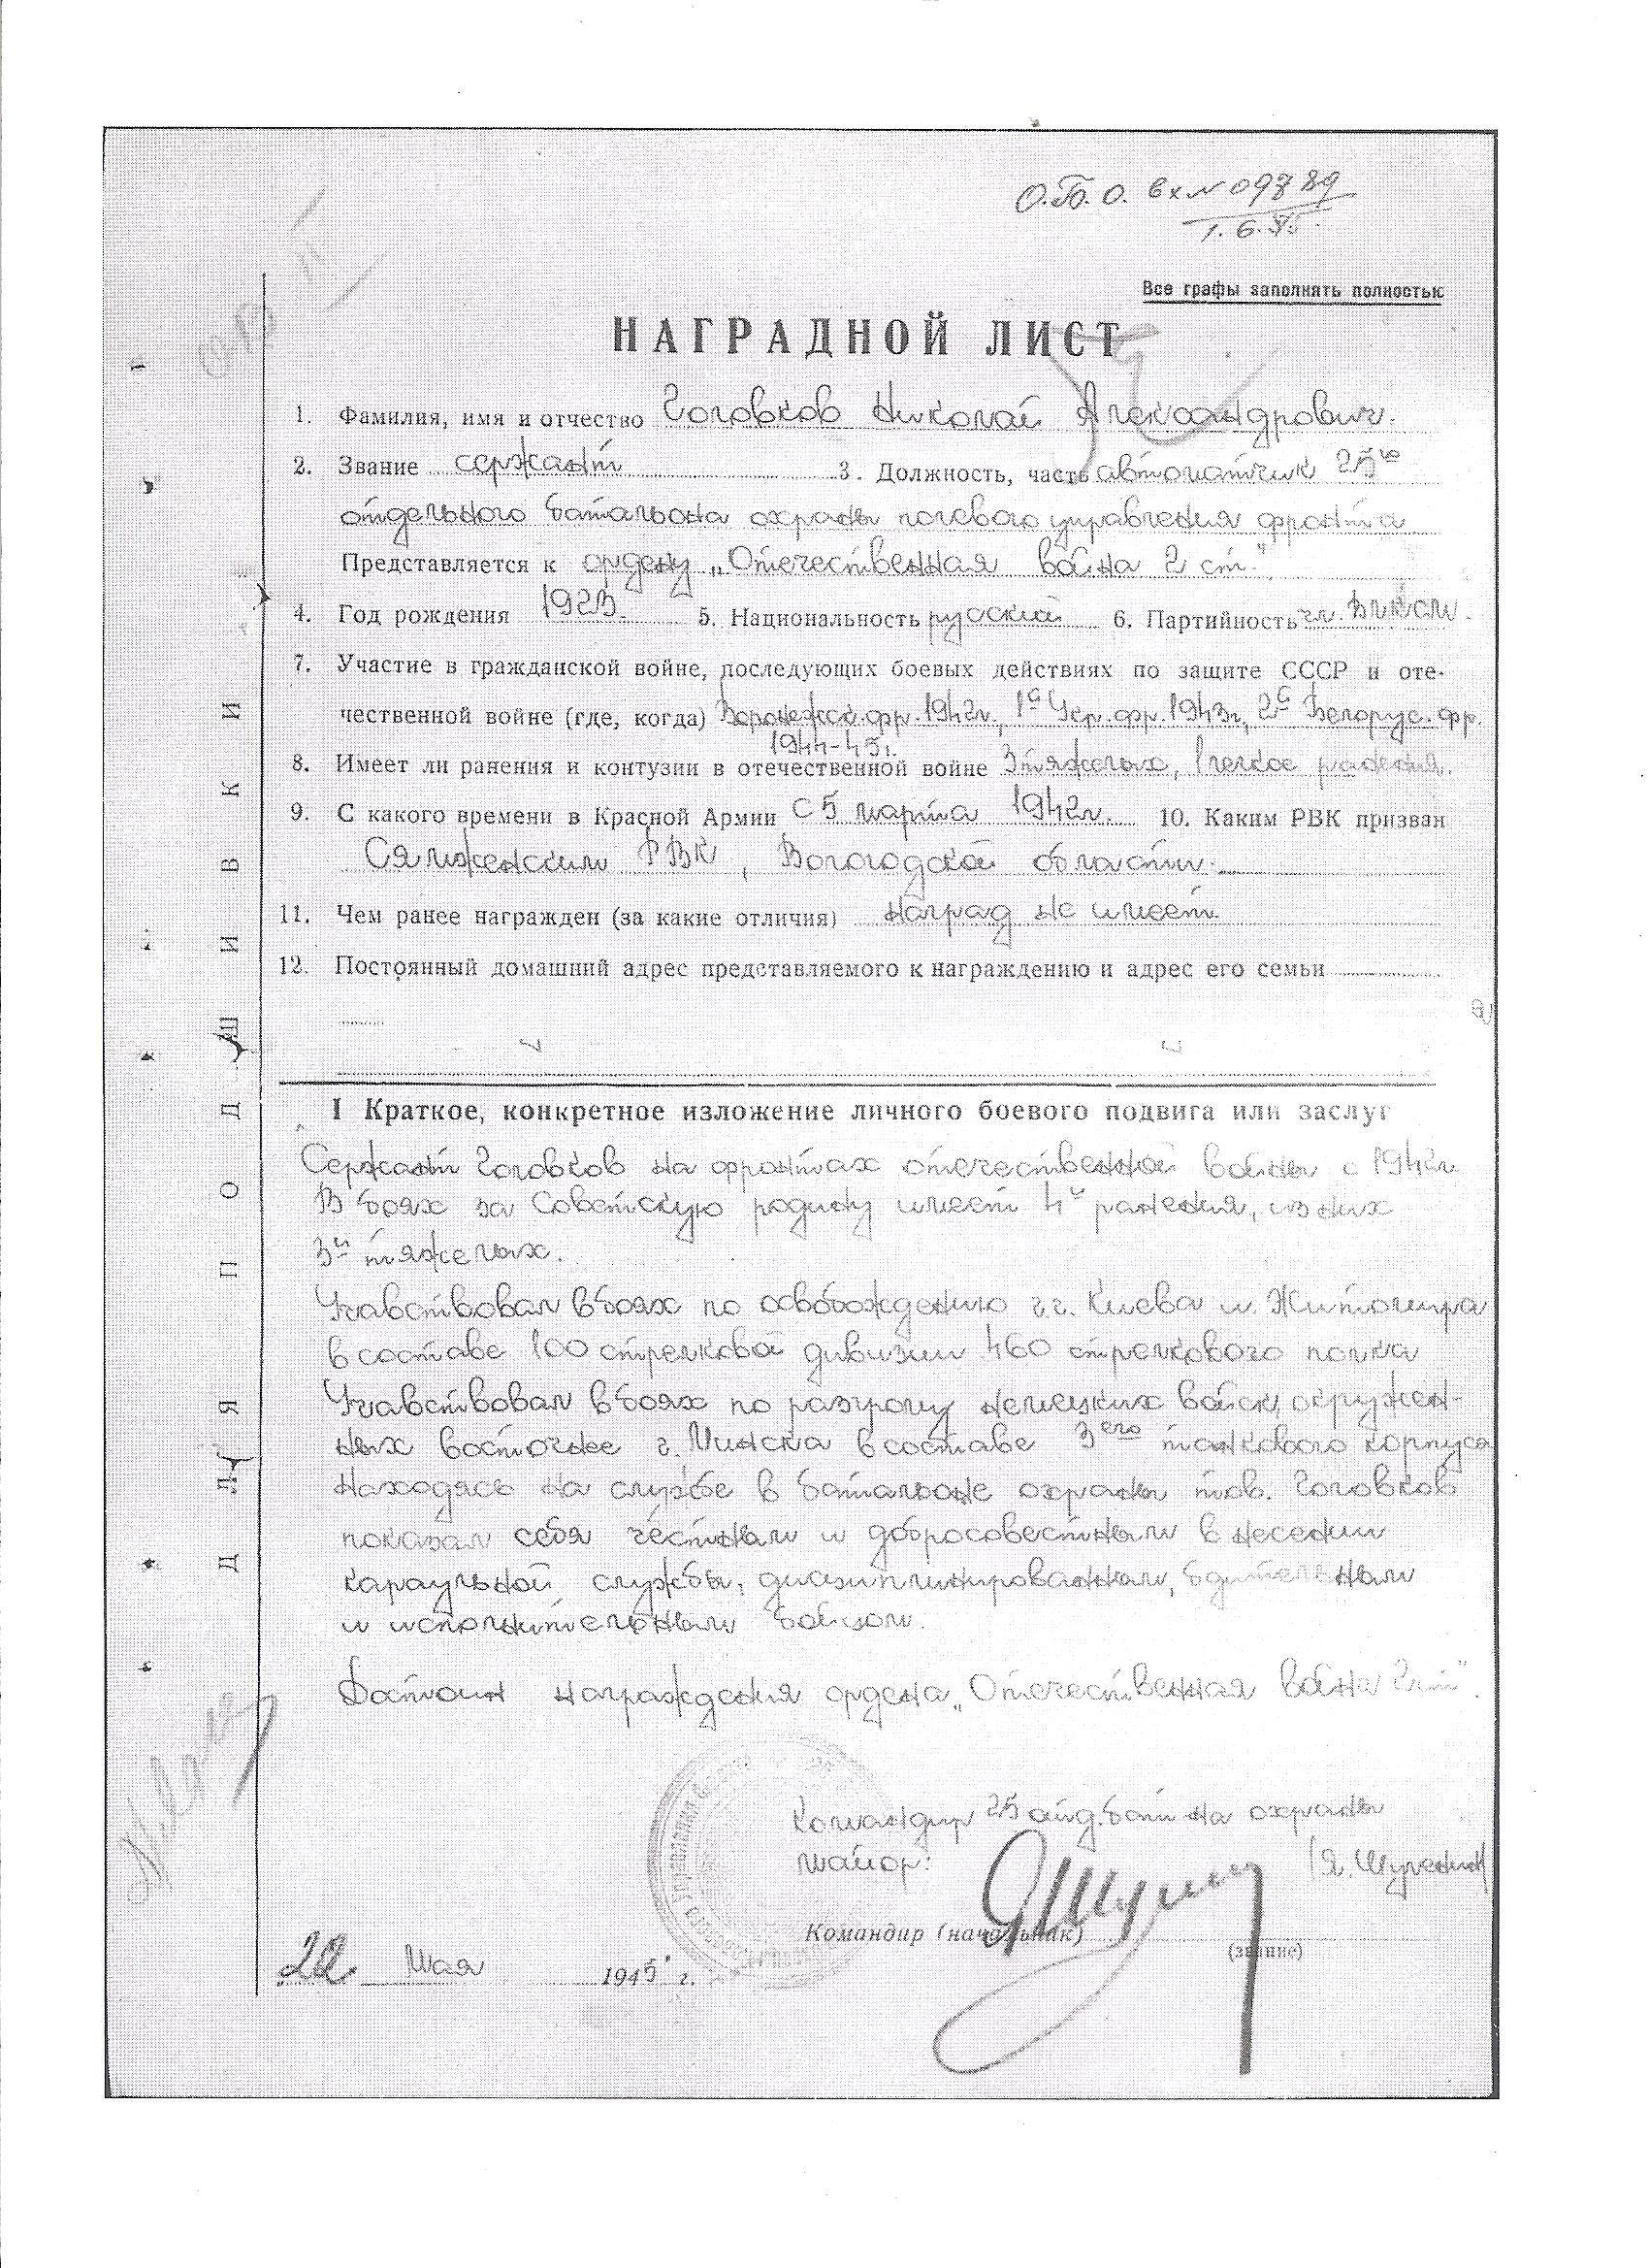 О.Б.О. вх № 09789
1.6.45.
Все графы заполнять полностью
НАГРАДНОЙ ЛИСТ
1. Фамилия, имя и отчество Гоговков Николай Александрович.
2. Звание сержант 3. Должность, часть автоматчик 25го
отдельного батальона охраны полевого управления фронта
Представляется к ордену „Отечественная война 2 ст."
4. Год рождения 1923. 5. Национальность русский 6. Партийность чл. ВЛКСМ.
7. Участие в гражданской войне, последующих боевых действиях по защите СССР и оте-
чественной войне (где, когда) Воронежск. фр. 1942г., 1й Укр. фр. 1943г., 2й Белорус. фр.
1944-45г.
8. Имеет ли ранения и контузии в отечественной войне 3 тяжелых, 1 легкое ранения.
9. С какого времени в Красной Армии с 5 марта 1942г. 10. Каким РВК призван
Сямженским РВК, Вологодской области.
11. Чем ранее награжден (за какие отличия) наград не имеет.
12. Постоянный домашний адрес представляемого к награждению и адрес его семьи
I Краткое, конкретное изложение личного боевого подвига или заслуг
Сержант Гоговков на фронтах отечественной войны с 1942г.
В боях за Советскую родину имеет 4и ранения, из них
3и тяжелых.
Учавствовал в боях по освобождению г.г. Киева и Житомира
в составе 100 стрелковой дивизии 460 стрелкового полка
Учавствовал в боях по разгрому немецких войск, окружен-
ных восточнее г. Минска в составе 3его танкового корпуса
Находясь на службе в батальоне охраны тов. Гоговков
показал себя честным и добросовестным в несении
караульной службы, дисциплинированным, бдительным
и исполнительным бойцом.
Достоин награждения ордена „Отечественная война 2 ст".
Командир 25 отд. бат-на охраны
майор: (Я. Шуленин
Командир (начальник)
(звание)
22 мая 1945 г.
ДЛЯ ПОДШИВКИ